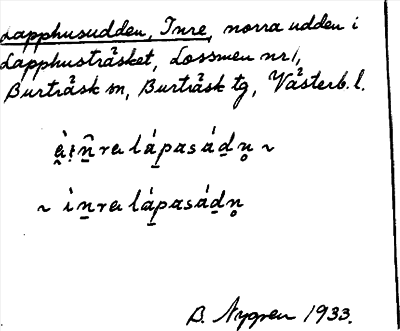 Lapphusudden, Inre, norra udden i
Lapphusträsket, Lossmen nr 1,
Burträsk sn, Burträsk tg, Västerb. l.
ìn̠ra láp̠asád̠n̥
B. Nygren 1933.